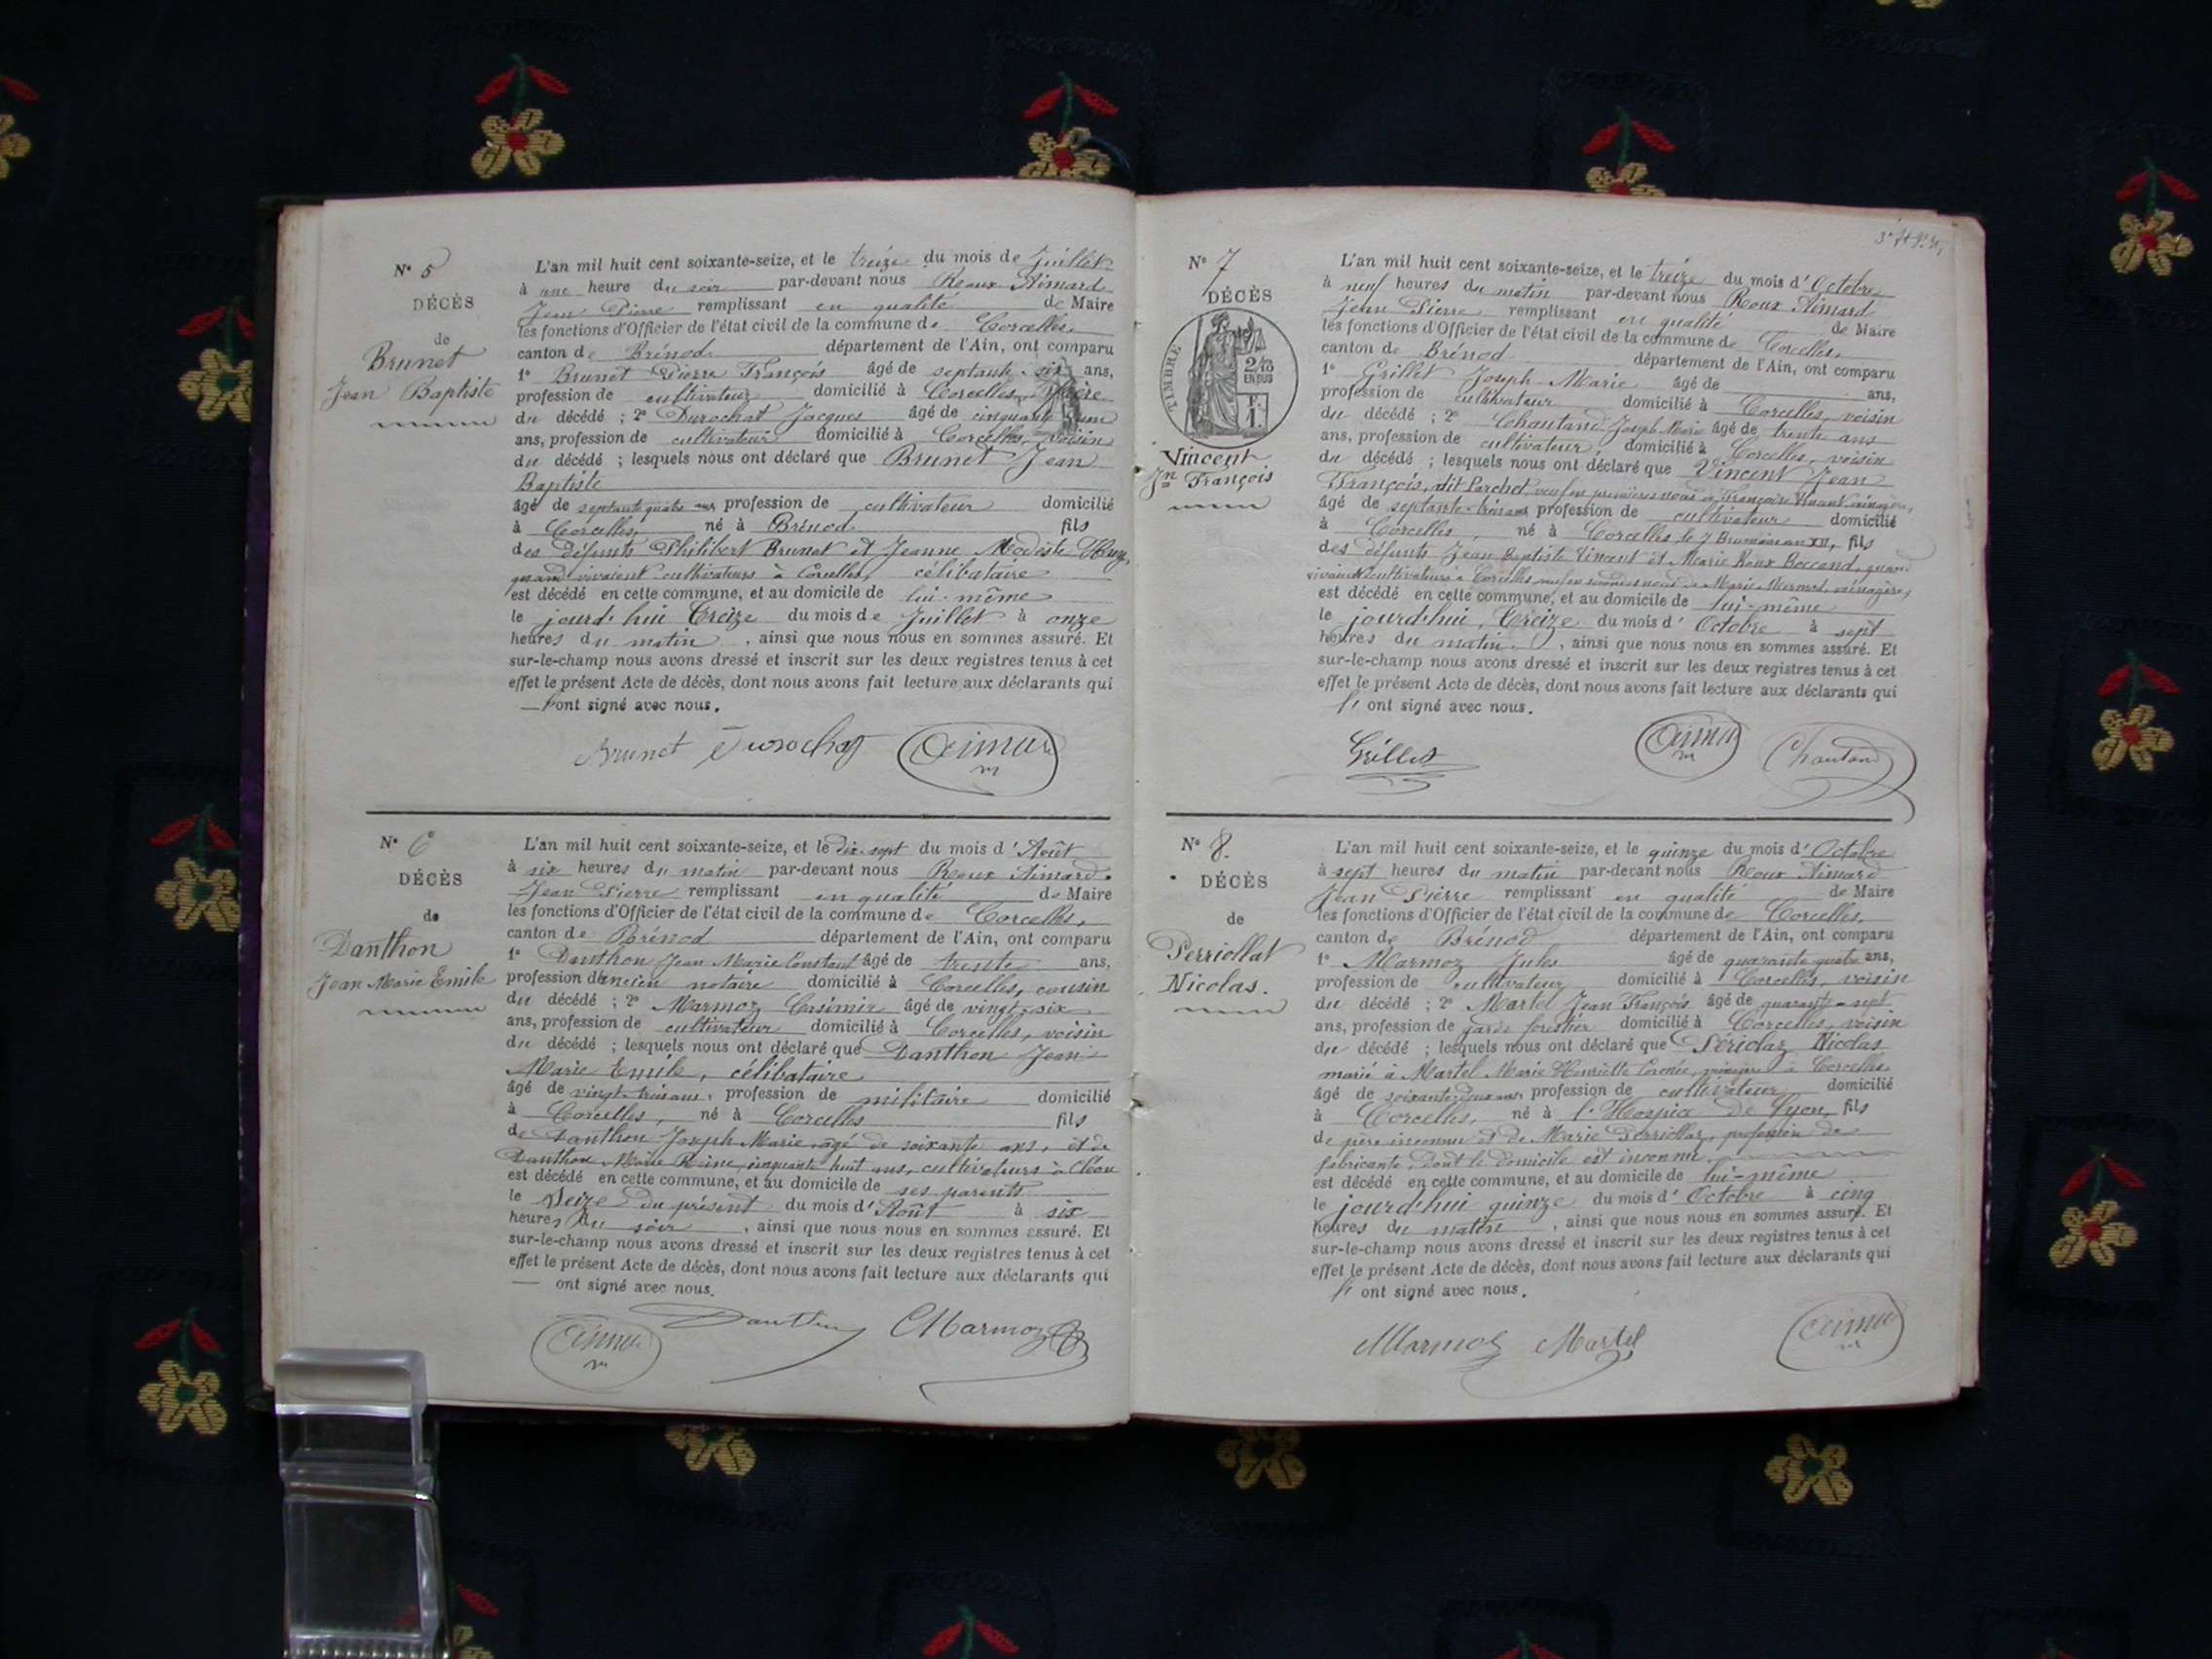 N° 5
DÉCÈS
de
Brunet
Jean Baptiste
L'an mil huit cent soixante-seize, et le treize du mois de Juillet
à une heure du soir par-devant nous Roux Aimard
Jean Pierre remplissant en qualité de Maire
les fonctions d'Officier de l'état civil de la commune de Corcelles,
canton de Brénod département de l'Ain, ont comparu
1° Brunet Pierre François âgé de septante-six ans,
profession de cultivateur domicilié à Corcelles, frère
du décédé ; 2° Durochat Jacques âgé de cinquante un
ans, profession de cultivateur domicilié à Corcelles, voisin
du décédé ; lesquels nous ont déclaré que Brunet Jean
Baptiste
âgé de septante quatre ans profession de cultivateur domicilié
à Corcelles, né à Brénod fils
des défunts Philibert Brunet et Jeanne Modeste Hugs,
quand vivaient cultivateurs à Corcelles, célibataire
est décédé en cette commune, et au domicile de lui-même
le jourd'hui Treize du mois de Juillet à onze
heures du matin, ainsi que nous nous en sommes assuré. Et
sur-le-champ nous avons dressé et inscrit sur les deux registres tenus à cet
effet le présent Acte de décès, dont nous avons fait lecture aux déclarants qui
l'ont signé avec nous.
Brunet Durochat Aimard
N° 6
DÉCÈS
de
Danthon
Jean Marie Emile
L'an mil huit cent soixante-seize, et le dix-sept du mois d'Août
à six heures du matin par-devant nous Roux Aimard
Jean Pierre remplissant en qualité de Maire
les fonctions d'Officier de l'état civil de la commune de Corcelles,
canton de Brénod département de l'Ain, ont comparu
1° Danthon Jean Marie Constant âgé de trente ans,
profession d'ancien notaire domicilié à Corcelles, cousin
du décédé ; 2° Marmoz Casimir âgé de vingt-six
ans, profession de cultivateur domicilié à Corcelles, voisin
du décédé ; lesquels nous ont déclaré que Danthon Jean
Marie Emile, célibataire
âgé de vingt-trois ans, profession de militaire domicilié
à Corcelles, né à Corcelles fils
de Danthon Joseph Marie, âgé de soixante ans, et de
Danthon Marie Reine, cinquante huit ans, cultivateurs à
est décédé en cette commune, et au domicile de ses parents
le Seize du présent du mois d'Août à six
heures du soir, ainsi que nous nous en sommes assuré. Et
sur-le-champ nous avons dressé et inscrit sur les deux registres tenus à cet
effet le présent Acte de décès, dont nous avons fait lecture aux déclarants qui
ont signé avec nous.
Aimard Danthon CMarmoz
N° 7
DÉCÈS
TIMBRE
2/10
EN SUS
F.
1.
Vincent
Jn François
L'an mil huit cent soixante-seize, et le treize du mois d'Octobre
à neuf heures du matin par-devant nous Roux Aimard
Jean Pierre remplissant en qualité de Maire
les fonctions d'Officier de l'état civil de la commune de Corcelles,
canton de Brénod département de l'Ain, ont comparu
1° Grillet Joseph Marie âgé de ans,
profession de cultivateur domicilié à Corcelles, voisin
du décédé ; 2° Chautand Joseph Marie âgé de trente ans
ans, profession de cultivateur domicilié à Corcelles, voisin
du décédé ; lesquels nous ont déclaré que Vincent Jean
François, dit Parchet, veuf en premières noces de Françoise Vincent ménagère,
âgé de septante-trois ans profession de cultivateur domicilié
à Corcelles, né à Corcelles, le 7 Brumaire an XII, fils
des défunts Jean Baptiste Vincent et Marie Roux Boccand, quand
vivaient cultivateurs à Corcelles veuf en secondes noces de Marie Mermet, ménagère,
est décédé en cette commune, et au domicile de lui-même
le jourd'hui, Treize du mois d'Octobre à sept
heures du matin, ainsi que nous nous en sommes assuré. Et
sur-le-champ nous avons dressé et inscrit sur les deux registres tenus à cet
effet le présent Acte de décès, dont nous avons fait lecture aux déclarants qui
l'ont signé avec nous.
Grillet Aimard Chautand
N° 8.
DÉCÈS
de
Perriollat
Nicolas.
L'an mil huit cent soixante-seize, et le quinze du mois d'Octobre
à sept heures du matin par-devant nous Roux Aimard
Jean Pierre remplissant en qualité de Maire
les fonctions d'Officier de l'état civil de la commune de Corcelles,
canton de Brénod département de l'Ain, ont comparu
1° Marmoz Jules âgé de quarante quatre ans,
profession de cultivateur domicilié à Corcelles, voisin
du décédé ; 2° Martel Jean François âgé de quarante-sept
ans, profession de garde forestier domicilié à Corcelles, voisin
du décédé ; lesquels nous ont déclaré que Périolaz Nicolas
marié à Martel Marie Henriette ménagère à Corcelles,
âgé de soixante-deux ans profession de cultivateur domicilié
à Corcelles, né à l'Hospice de Lyon, fils
de père inconnu et de Marie Perriollaz, profession de
fabricante, dont le domicile est inconnu
est décédé en cette commune, et au domicile de lui-même
le jourd'hui quinze du mois d'Octobre à cinq
heures du matin, ainsi que nous nous en sommes assuré. Et
sur-le-champ nous avons dressé et inscrit sur les deux registres tenus à cet
effet le présent Acte de décès, dont nous avons fait lecture aux déclarants qui
l'ont signé avec nous.
Marmoz Martel Aimard